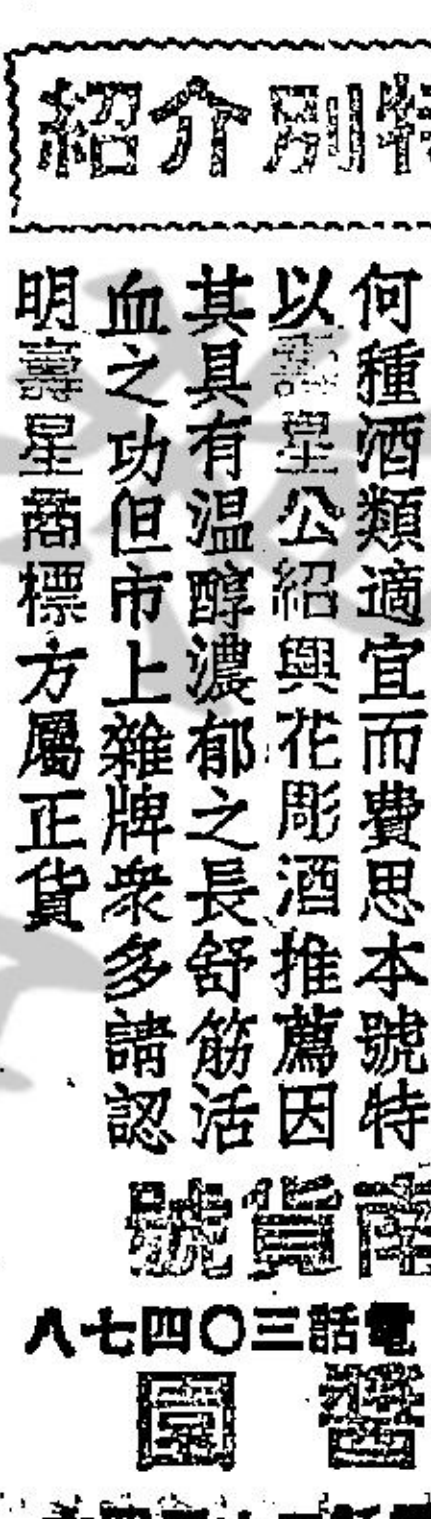 特別介紹
何種酒類適宜而費思本號特
以壽星公紹興花彫酒推薦因
其具有温醇濃郁之長舒筋活
血之功但市上雜牌衆多請認
明壽星商標方屬正貨
南貨號
電話三〇四七八